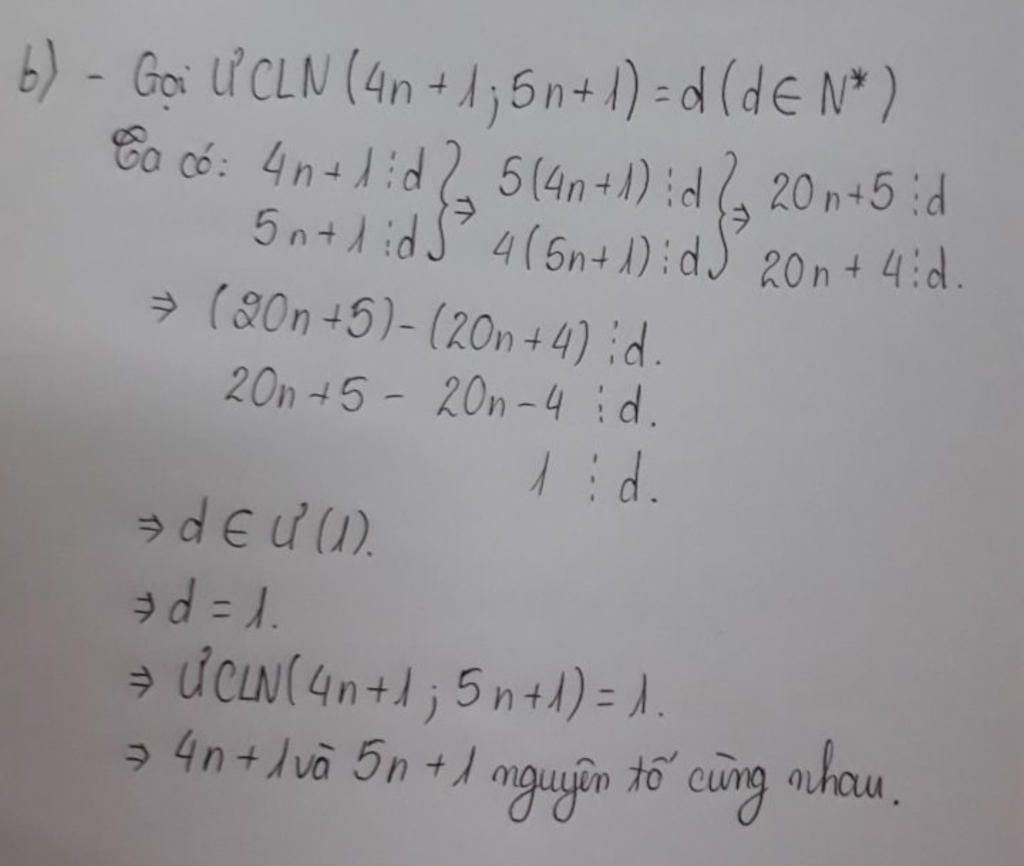 b) - Gọi ƯCLN (4n + 1; 5n + 1) = d (d ∈ N*)
Ta có: 4n + 1 ⋮ d } ⇒ 5(4n + 1) ⋮ d } ⇒ 20n + 5 ⋮ d
5n + 1 ⋮ d } 4(5n + 1) ⋮ d } 20n + 4 ⋮ d.
⇒ (20n + 5) - (20n + 4) ⋮ d.
20n + 5 - 20n - 4 ⋮ d.
1 ⋮ d.
⇒ d ∈ Ư (1).
⇒ d = 1.
⇒ ƯCLN (4n + 1; 5n + 1) = 1.
⇒ 4n + 1 và 5n + 1 nguyên tố cùng nhau.